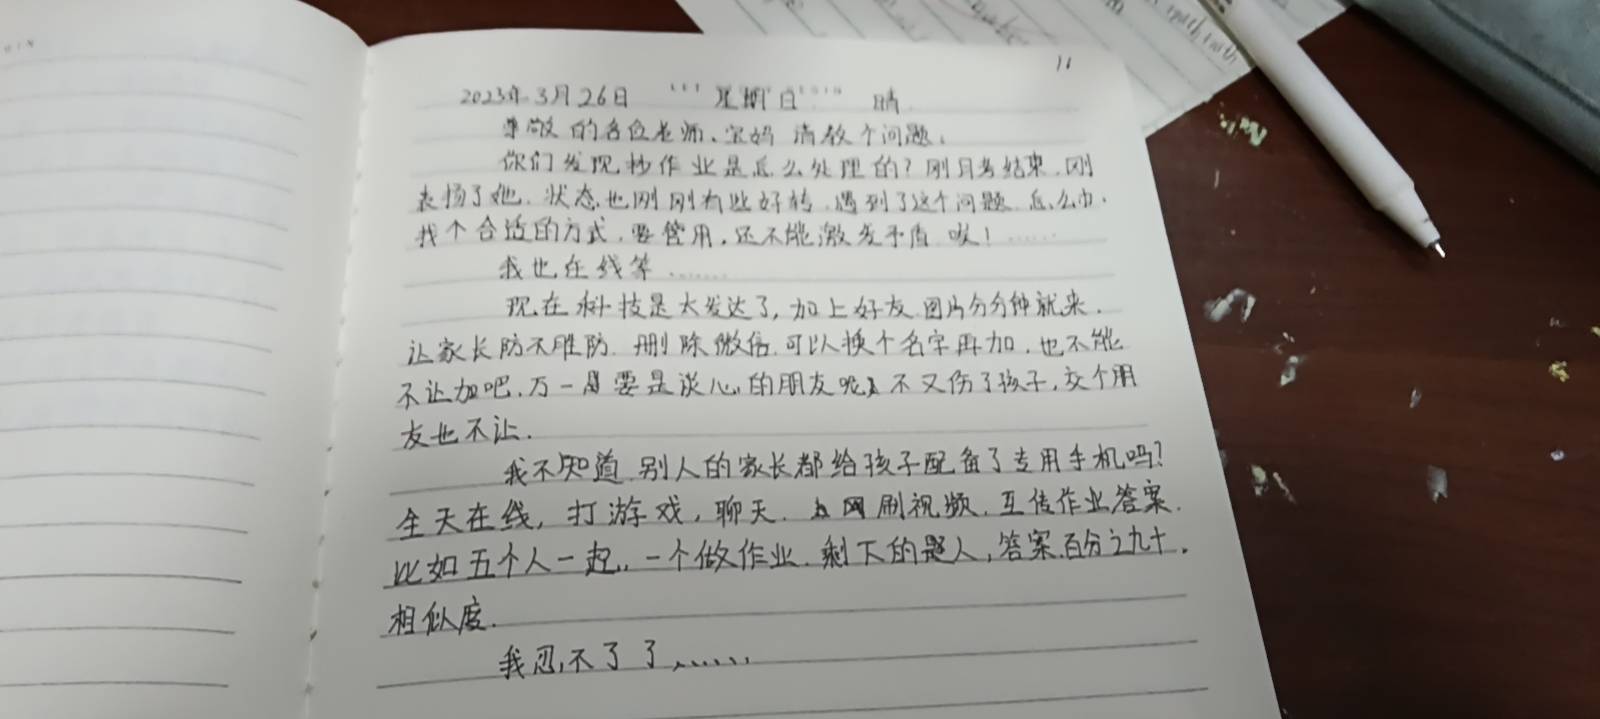 11
2023年3月26日 星期日 晴
尊敬的各位老师、宝妈 请教个问题,
你们发现抄作业是怎么处理的?刚月考结束.刚
表扬了她.状态也刚刚有些好转.遇到了这个问题.怎么办.
找个合适的方式.要管用.还不能激发矛盾.唉!……
我也在线等……
现在科技是太发达了,加上好友.图片分分钟就来.
让家长防不胜防.删除微信.可以换个名字再加.也不能
不让加吧.万一要是谈心的朋友呢 不又伤了孩子,交个朋
友也不让.
我不知道 别人的家长都给孩子配备了专用手机吗?
全天在线,打游戏,聊天.上网刷视频.互传作业答案.
比如五个人一起,一个做作业.剩下的 人,答案.百分之九十.
相似度.
我忍不了了……